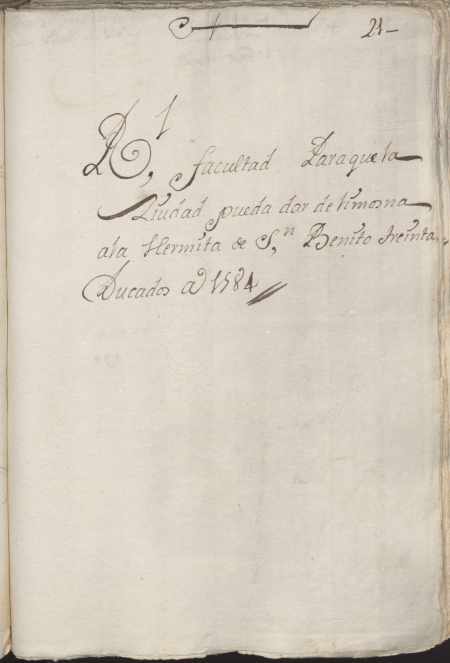 21
R.l facultad Paraquela
Ziudad pueda dar delimosna
ala Hermita de S.n Benito treinta
Ducados a 1584